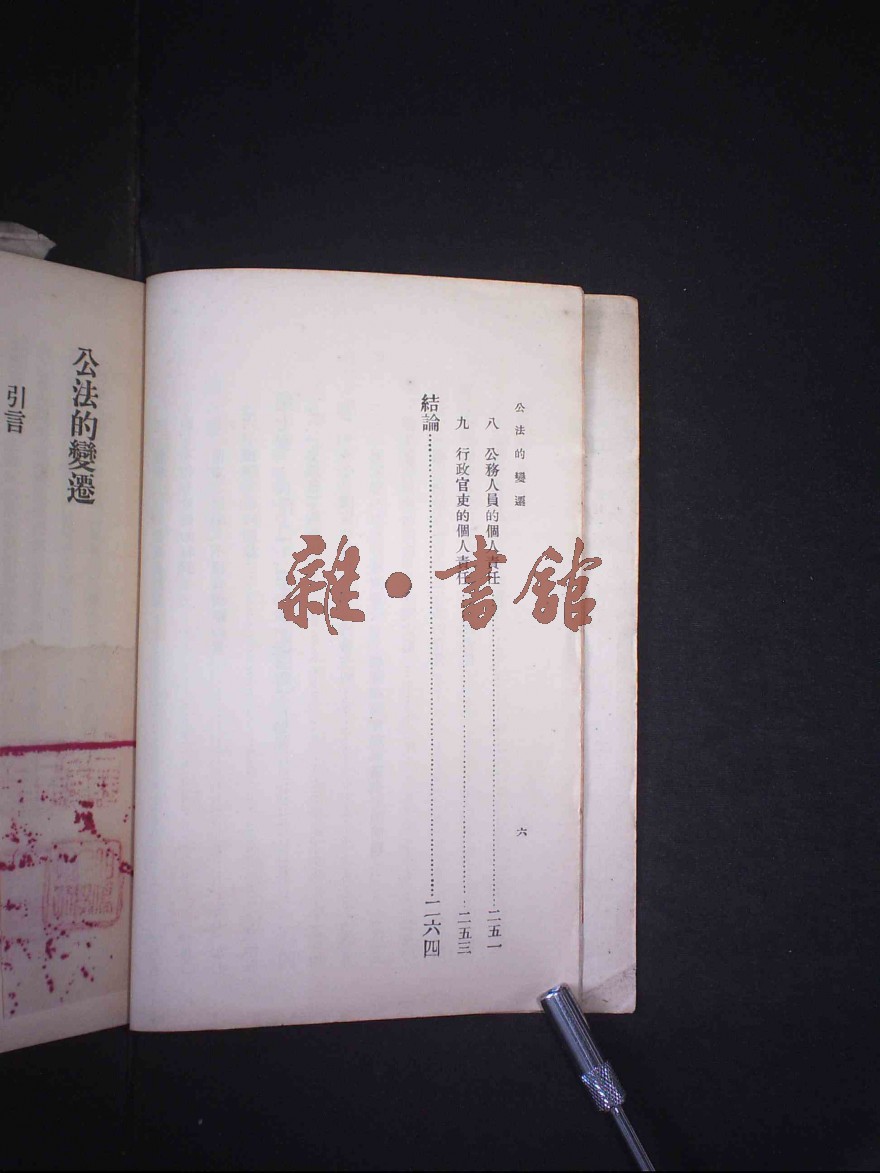 公法的變遷
八　公務人員的個人責任……二五一
九　行政官吏的個人責任……二五三
結論……二六四
六
公法的變遷
引言
雜·書館